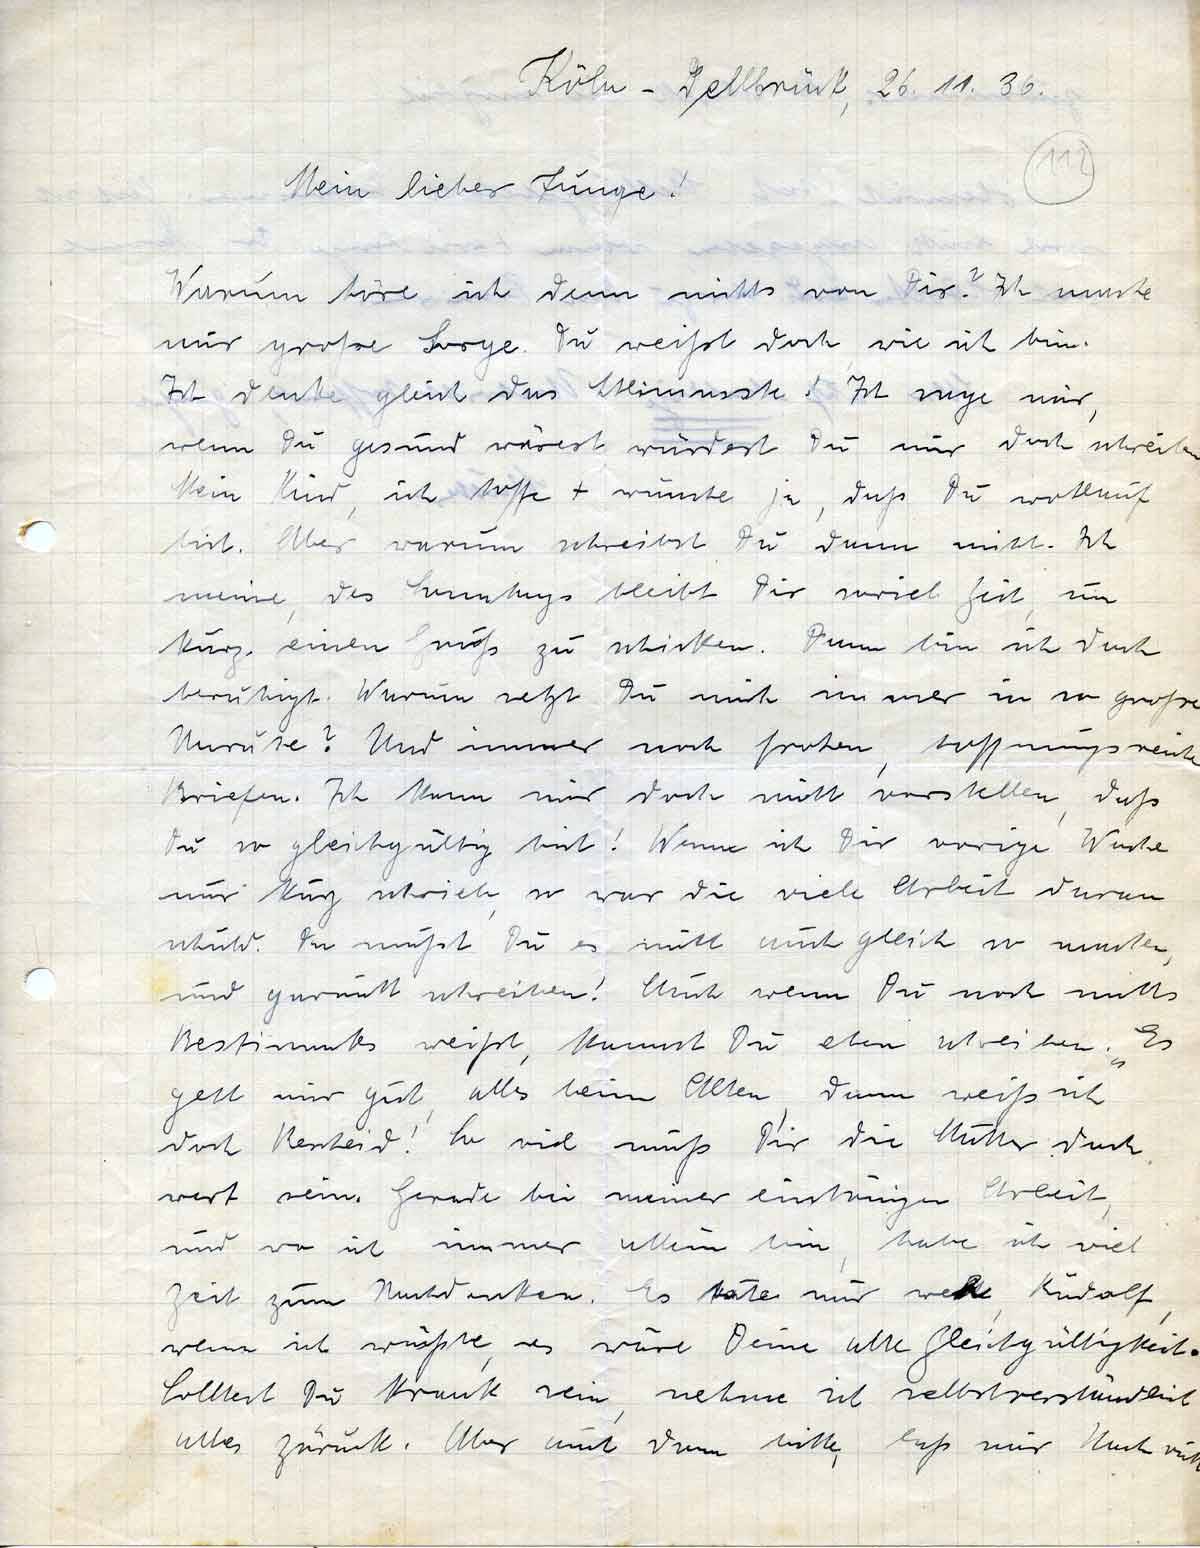 Köln-Dellbrück, 26. 11. 36.
112
Mein lieber Junge!
Warum höre ich denn nichts von Dir? Ich mache
mir große Sorge. Du weißt doch, wie ich bin.
Ich denke gleich das Schlimmste! Ich sage mir,
wenn Du gesund wärest würdest Du mir doch schreiben
Mein Kind, ich hoffe + wünsche ja, daß Du wohlauf
bist. Aber warum schreibst Du dann nicht. Ich
meine, des Sonntags bleibt Dir soviel Zeit, um
kurz einen Gruß zu schicken. Dann bin ich doch
beruhigt. Warum setzt Du mich immer in so große
Unruhe? Und immer nach frohen, hoffnungsreichen
Briefen. Ich kann mir doch nicht vorstellen, daß
Du so gleichgültig bist! Wenn ich Dir vorige Woche
nur kurz schrieb, so war die viele Arbeit daran
schuld. Da mußt Du es nicht auch gleich so machen,
und garnicht schreiben! Auch wenn Du noch nichts
Bestimmtes weißt, kannst Du eben schreiben. „Es
geht mir gut, alles beim Alten", dann weiß ich
doch Bescheid! So viel muß Dir die Mutter doch
wert sein. Gerade bei meiner eintönigen Arbeit,
und wo ich immer allein bin, habe ich viel
Zeit zum Nachdenken. Es täte mir weh, Rudolf,
wenn ich wüßte, es wäre Deine alte Gleichgültigkeit.
Solltest Du krank sein, nehme ich selbstverständlich
alles zurück. Aber auch dann bitte, laß mir Nachricht